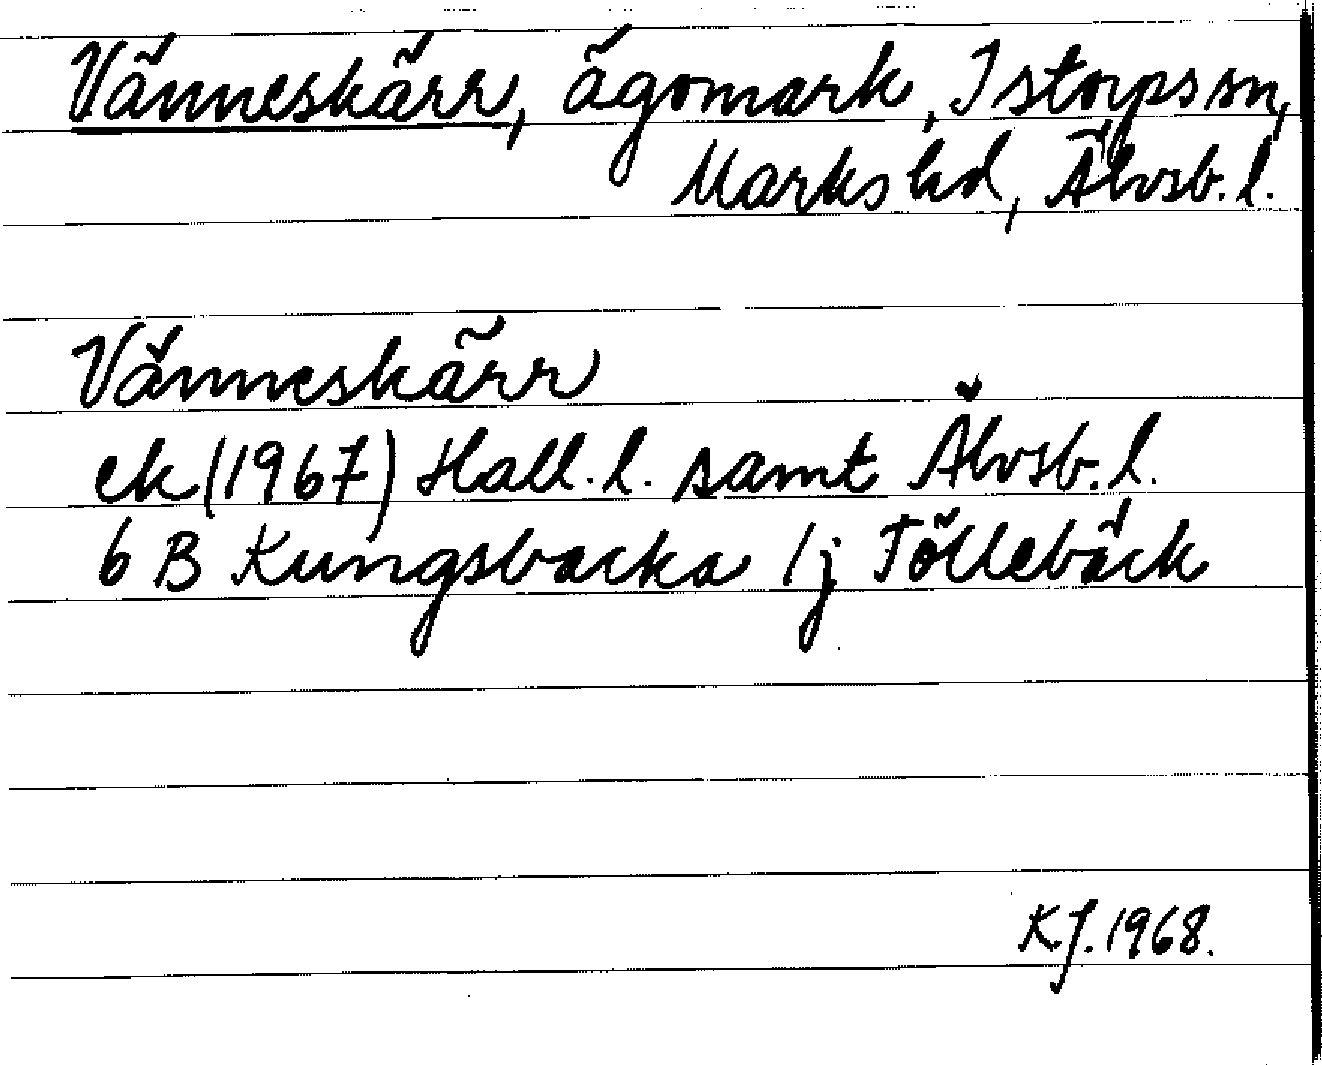 Vänneskärr, ägomark, Istorps sn,
Marks hd, Älvsb. l.
Vänneskärr
ek (1967) Hall. l. samt Älvsb. l.
6 B Kungsbacka 1j Töllebäck
KJ. 1968.